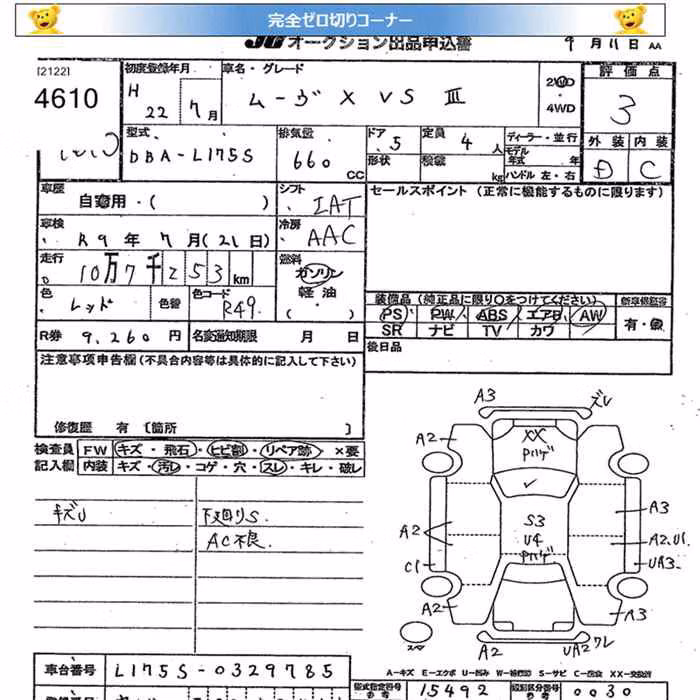 完全ゼロ切りコーナー
JU オークション出品申込書 9月11日 AA
[2122]
4610
初度登録年月 車名・グレード 評価点
H 22 7月 ムーヴ X VS Ⅲ 2WD ・ 4WD 3
型式 排気量 ドア 定員 ディーラー・並行 外装 内装
DBA-L175S 660 CC 5 4人 モデル年式 年 D C
形状 積載 kg ハンドル 左・右
車歴 シフト セールスポイント (正常に機能するものに限ります)
自家用・( ) IAT
車検 冷房
R9年7月(21日) AAC
走行 燃料
10万7千253km ガソリン
軽油
( )
色 色替 色コード 装備品 (純正品に限り○をつけてください) 新車保証書
レッド R49 PS PW ABS エアB AW 有・無
SR ナビ TV カワ
R券 9,260円 名変通知期限 月 日 後日品
注意事項申告欄 (不具合内容等は具体的に記入して下さい)
修復歴 有 [箇所 ]
検査員 FW キズ・飛石・ヒビ割・リペア跡 ×要
記入欄 内装 キズ・汚レ・コゲ・穴・スレ・キレ・破レ
キズU 下廻りS.
AC不良.
A3 ズレ
A2 XX Pハゲ
A3
A2 S3 A2.U1.
U4
Pハゲ
C1 UA3.
A2 A3
A2 UA2ワレ
A-キズ E-エクボ U-凹み W-補修跡 S-サビ C-腐食 XX-交換済
車台番号 L175S-0329785
型式指定番号 15492 類別区分番号 0030